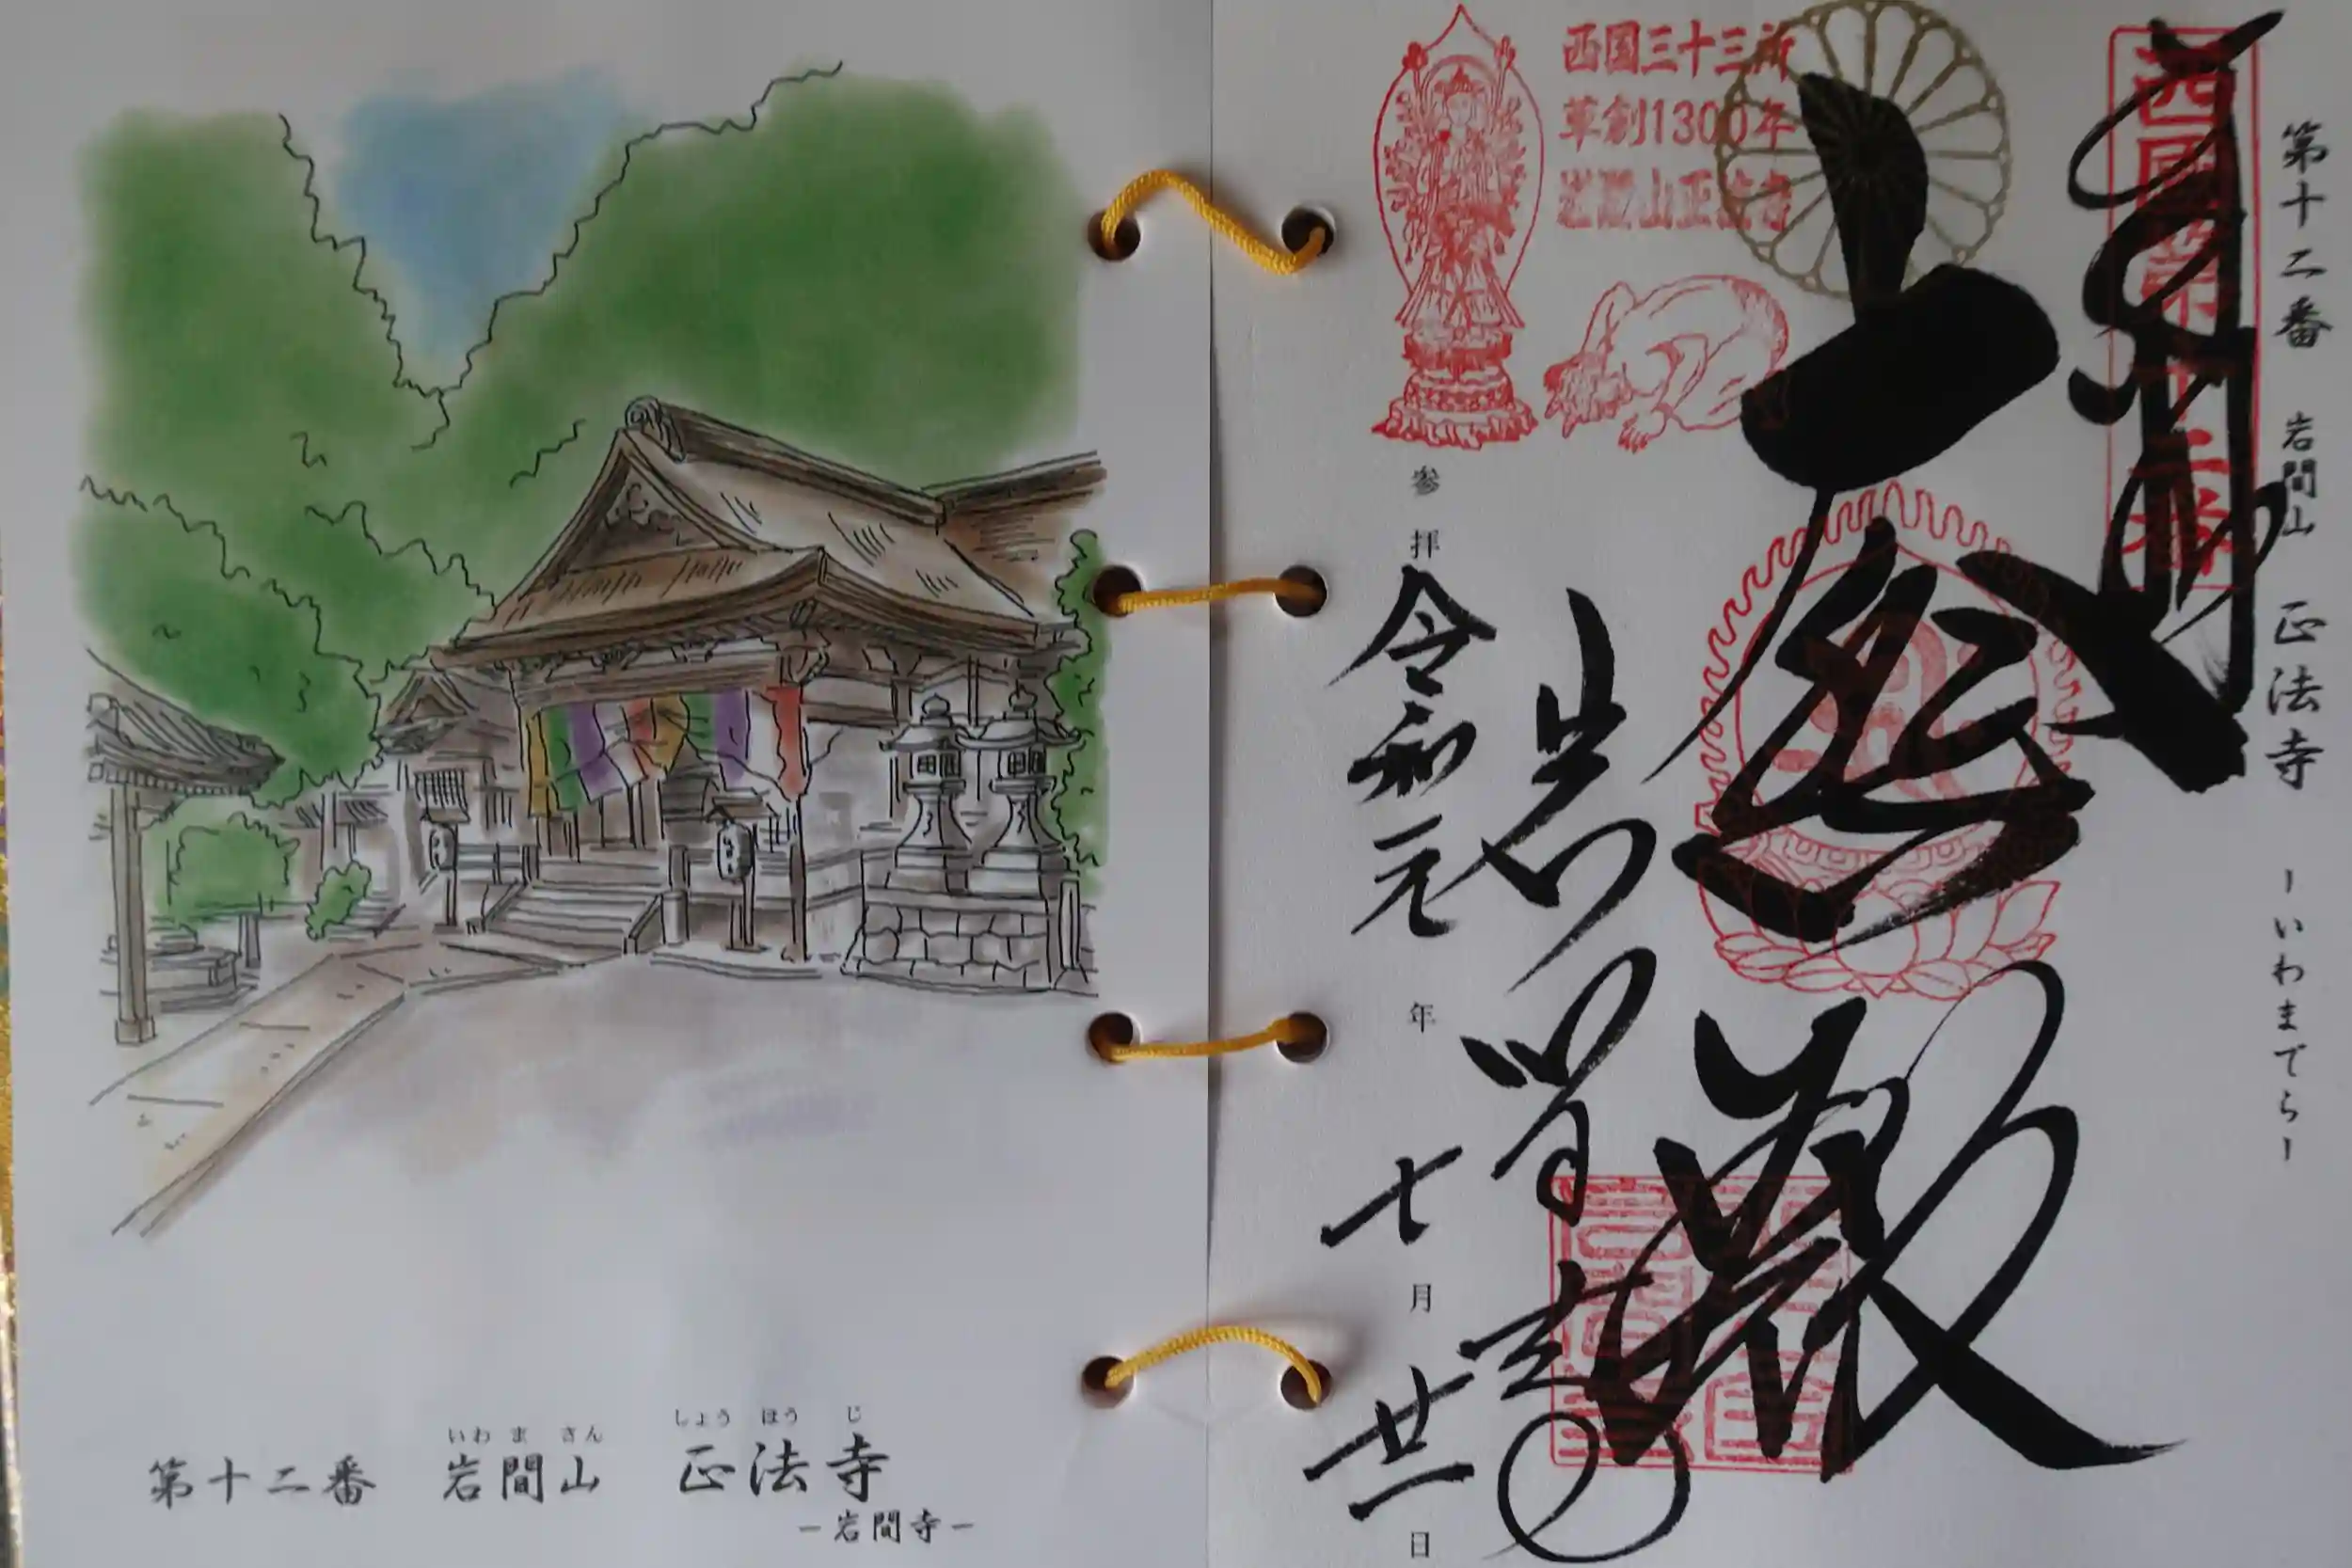 第十二番 岩間山 正法寺 －いわまでら－
西國第十二番
大悲殿
岩間寺
西国三十三所
草創1300年
岩間山正法寺
参拝 令和元年 七月 廿一日
いわ ま さん しょう ほう じ
第十二番 岩間山 正法寺
－岩間寺－